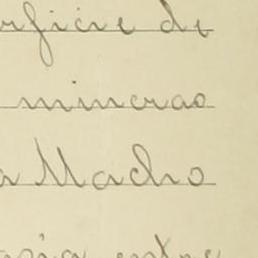 rficie de
mineraо
a Machо
entre